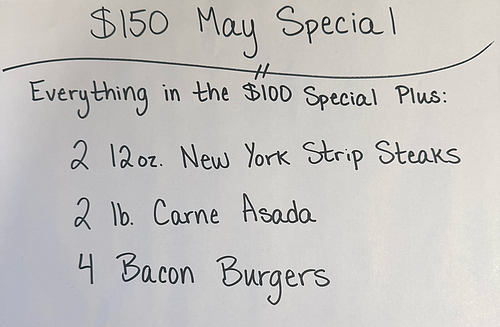 $150 May Special
Everything in the $100 Special Plus:
2 12oz. New York Strip Steaks
2 lb. Carne Asada
4 Bacon Burgers